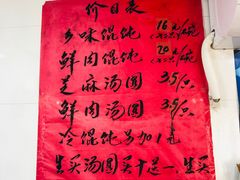 价目表
乡味馄饨 16元/碗
鲜肉馄饨 20元/碗
芝麻汤圆 3.5/只
鲜肉汤圆 3.5/只
冷馄饨另加1元
生买汤圆买十送一 生买